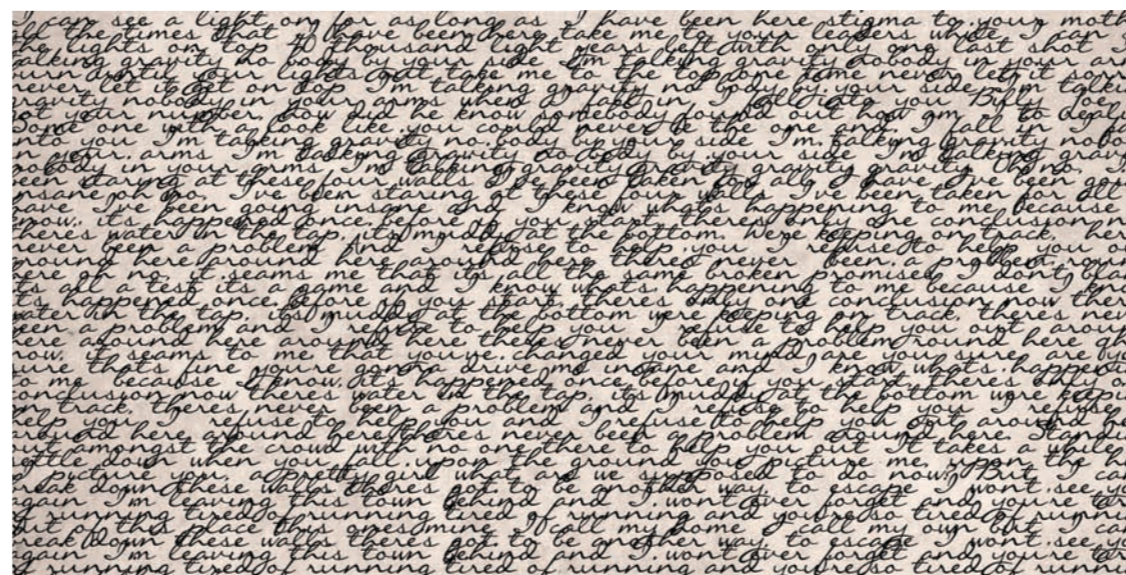 I can see a light on for as long as I have been here stigma to your moth
all the times that I have been here take me to your leaders while I can I
the lights on top 10 thousand light years left with only one last shot I
talking gravity no body by your side I'm talking gravity nobody in your arm
burn until your lights out take me to the top one time never let it
never let it get on top I'm talking gravity no body by your side I'm talki
gravity nobody in your arms when I fall in I fall into you Billy Joe
got your number how did he know somebody found out how am I to
Some one with a look like you could never be the one and I fall in I fa
into you I'm talking gravity no body by your side I'm talking gravity nobo
in your arms I'm talking gravity no body by your side I'm talking grav
nobody in your arms I'm talking gravity gravity gravity gravity no, I
been staring at these four walls I've been taken for all I have I've been goi
insane oh no, I've been staring at these four walls I've been taken for all
have I've been going insane and I know whats happening to me because I
know, it's happened once before if you start theres only one conclusion
there's water in the tap, its muddy at the bottom were keeping on track, there
never been a problem And I refuse to help you I refuse to help you o
around here around here around here there's never been a problem roun
here oh no, it seams me that its all the same broken promises I don't bla
its all a test its a game and I know whats happening to me because I kno
its happened once before if you start theres only one conclusion now ther
water in the tap, its muddy at the bottom were keeping on track, theres nev
been a problem and I refuse to help you I refuse to help you out arou
here around here around here theres never been a problem round here oh
now, it seams to me that youve changed your mind are you sure are you
sure thats fine youre gonna drive me insane and I know whats happening
to me because I know, its happened once before if you start theres only o
conclusion now theres water in the tap, its muddy at the bottom were keepin
on track, theres never been a problem and I refuse to help you I refuse
help you I refuse to help you and I refuse to help you out around he
around here around here theres never been a problem round here Standin
amongst the crowd with no one there to help you out It takes a while
settle down when you fall upon the ground You picture me, upon the h
a picture you, a pretty girl what are we supposed to do now, But I ca
break down these walls theres got to be another way to escape I wont see yo
again I'm leaving this town behind and I wont ever forget and youre
of running tired of running tired of running and youre so tired of runnin
out of this place this ones mine I call my home I call my own but I can
break down these walls theres got to be another way to escape I wont see yo
again I'm leaving this town behind and I wont ever forget and youre
of running tired of running tired of running and youre so tired of runnin